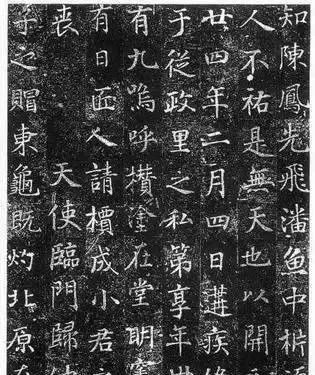 知陳鳳先飛潘魚中析
人不祐是無天也以開
廿四年二月四日遘疾終
于從政里之私第享年卅
有九嗚呼攢塗在堂明
有日匠人請櫝成小君
喪 天使臨門歸
子之賵東龜既灼北原